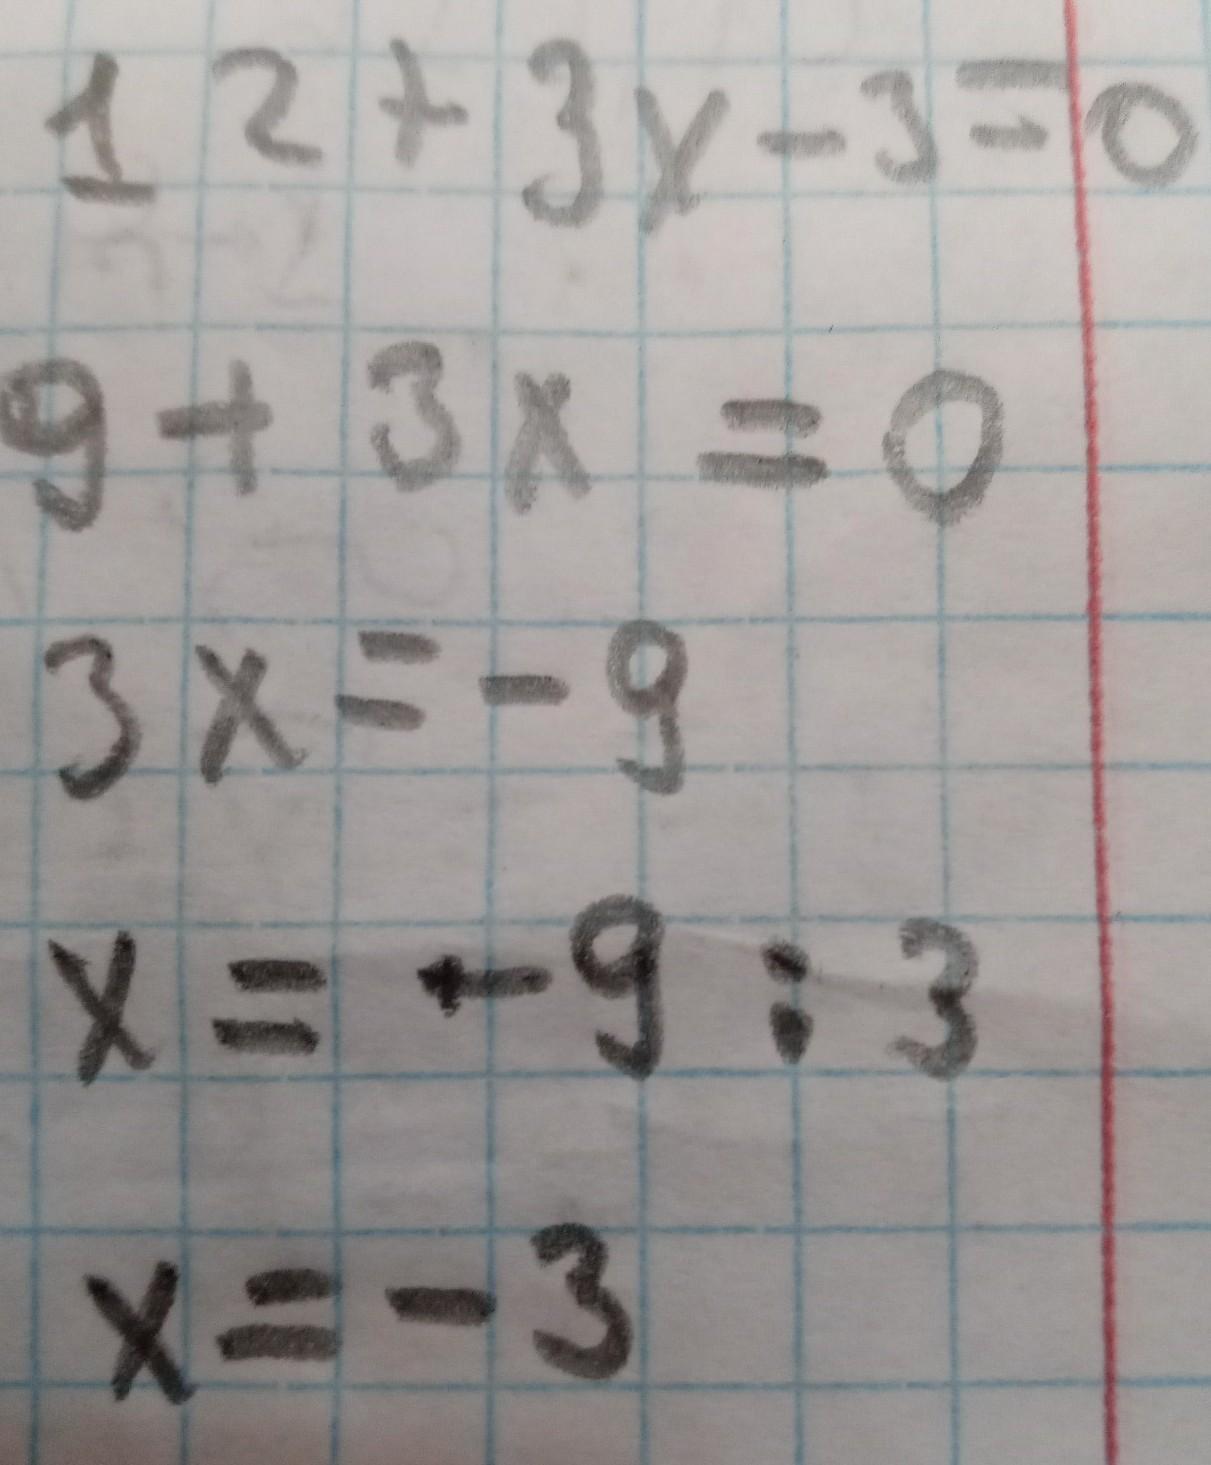 12+3x-3=0
9+3x=0
3x=-9
x=-9:3
x=-3